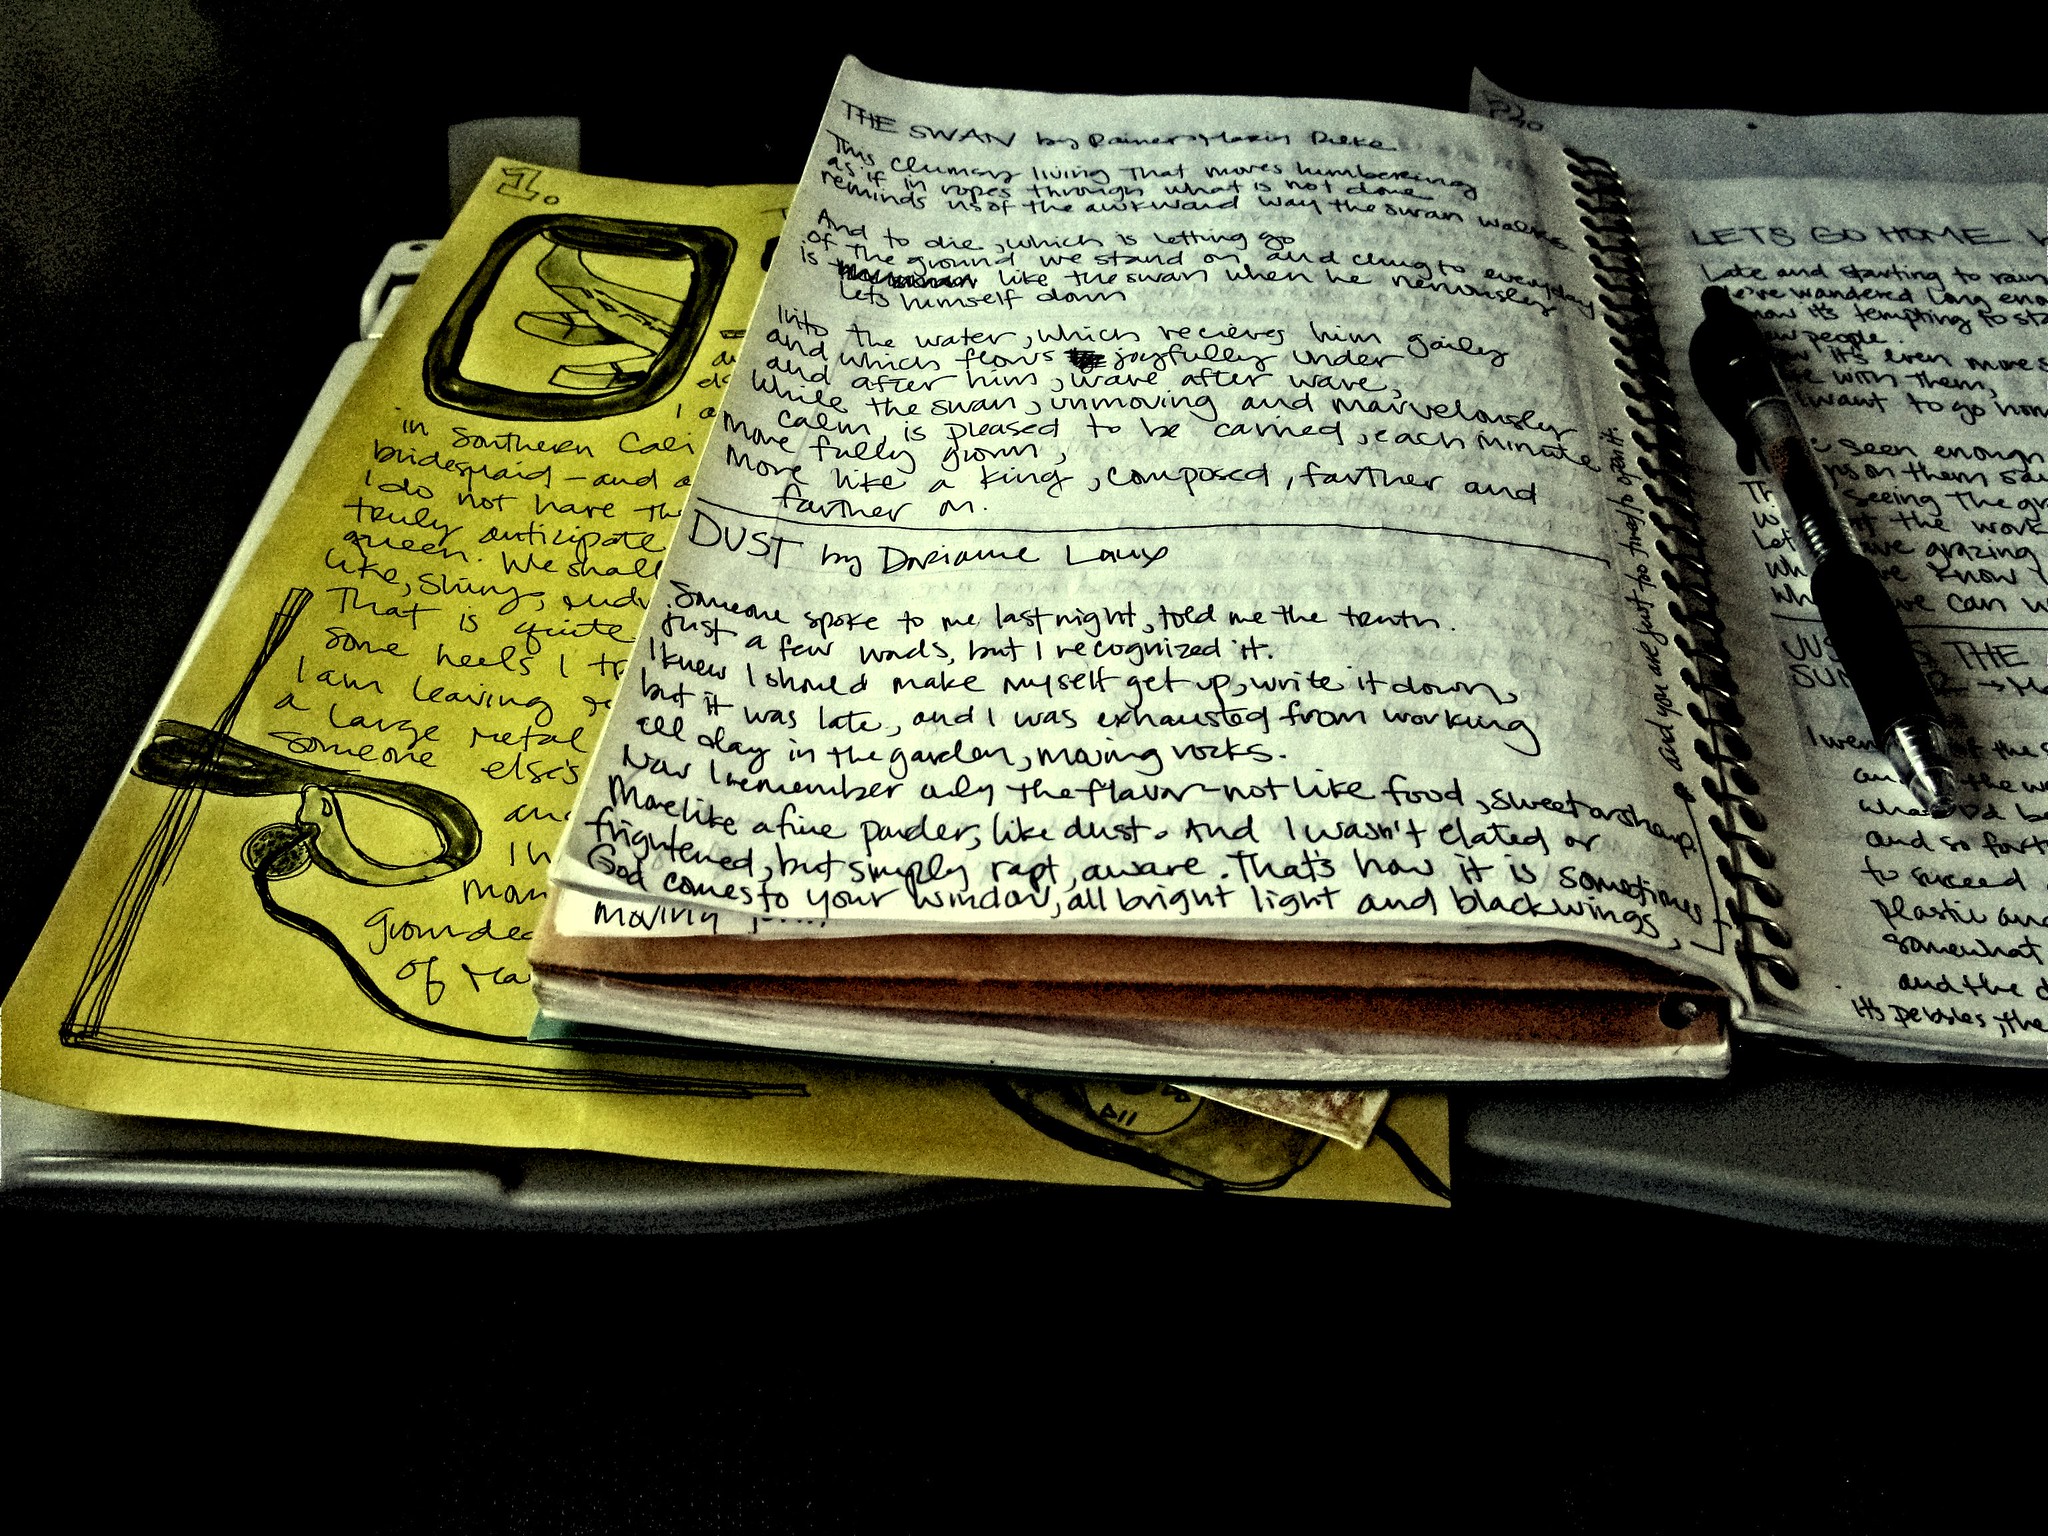 1.
in Southern Cali
bridesmaid - and a
I do not have the
truly anticipate
queen. We shall
like, shiny,
That is quite
some heels I tr
I am leaving
a large metal
someone else's
and
I h
man
grounded
of Ma
THE SWAN by Rainer Maria Rilke
This clumsy living that moves lumbering
as if in ropes through what is not done
reminds us of the awkward way the swan walks.
And to die, which is letting go
of the ground we stand on and clung to everyday
is like the swan when he nervously
lets himself down
Into the water, which recieves him gaily
and which flows joyfully under
and after him, wave after wave,
While the swan, unmoving and marvelously
calm, is pleased to be carried, each minute
more fully grown,
More like a king, composed, farther and
farther on.
DUST by Dorianne Laux
Someone spoke to me last night, told me the truth.
Just a few words, but I recognized it.
I knew I should make myself get up, write it down,
but it was late, and I was exhausted from working
all day in the garden, moving rocks.
Now I remember only the flavor - not like food, sweet or sharp.
More like a fine powder, like dust. And I wasn't elated or
frightened, but simply rapt, aware. That's how it is sometimes -
God comes to your window, all bright light and black wings,
and you are just too tired to open it.
LETS GO HOME.
Late and starting to rain
We've wandered long eno
now it's tempting to sta
new people.
it's even more s
with them,
I want to go hom
seen enough
on them
seeing the gr
the work
Let ve grazing
we know
we can w
JUS THE
SUN
I wen of the s
an the we
what I'd be
and so fort
to succeed
plastic and
somewhat
and the d
It's pebbles, the